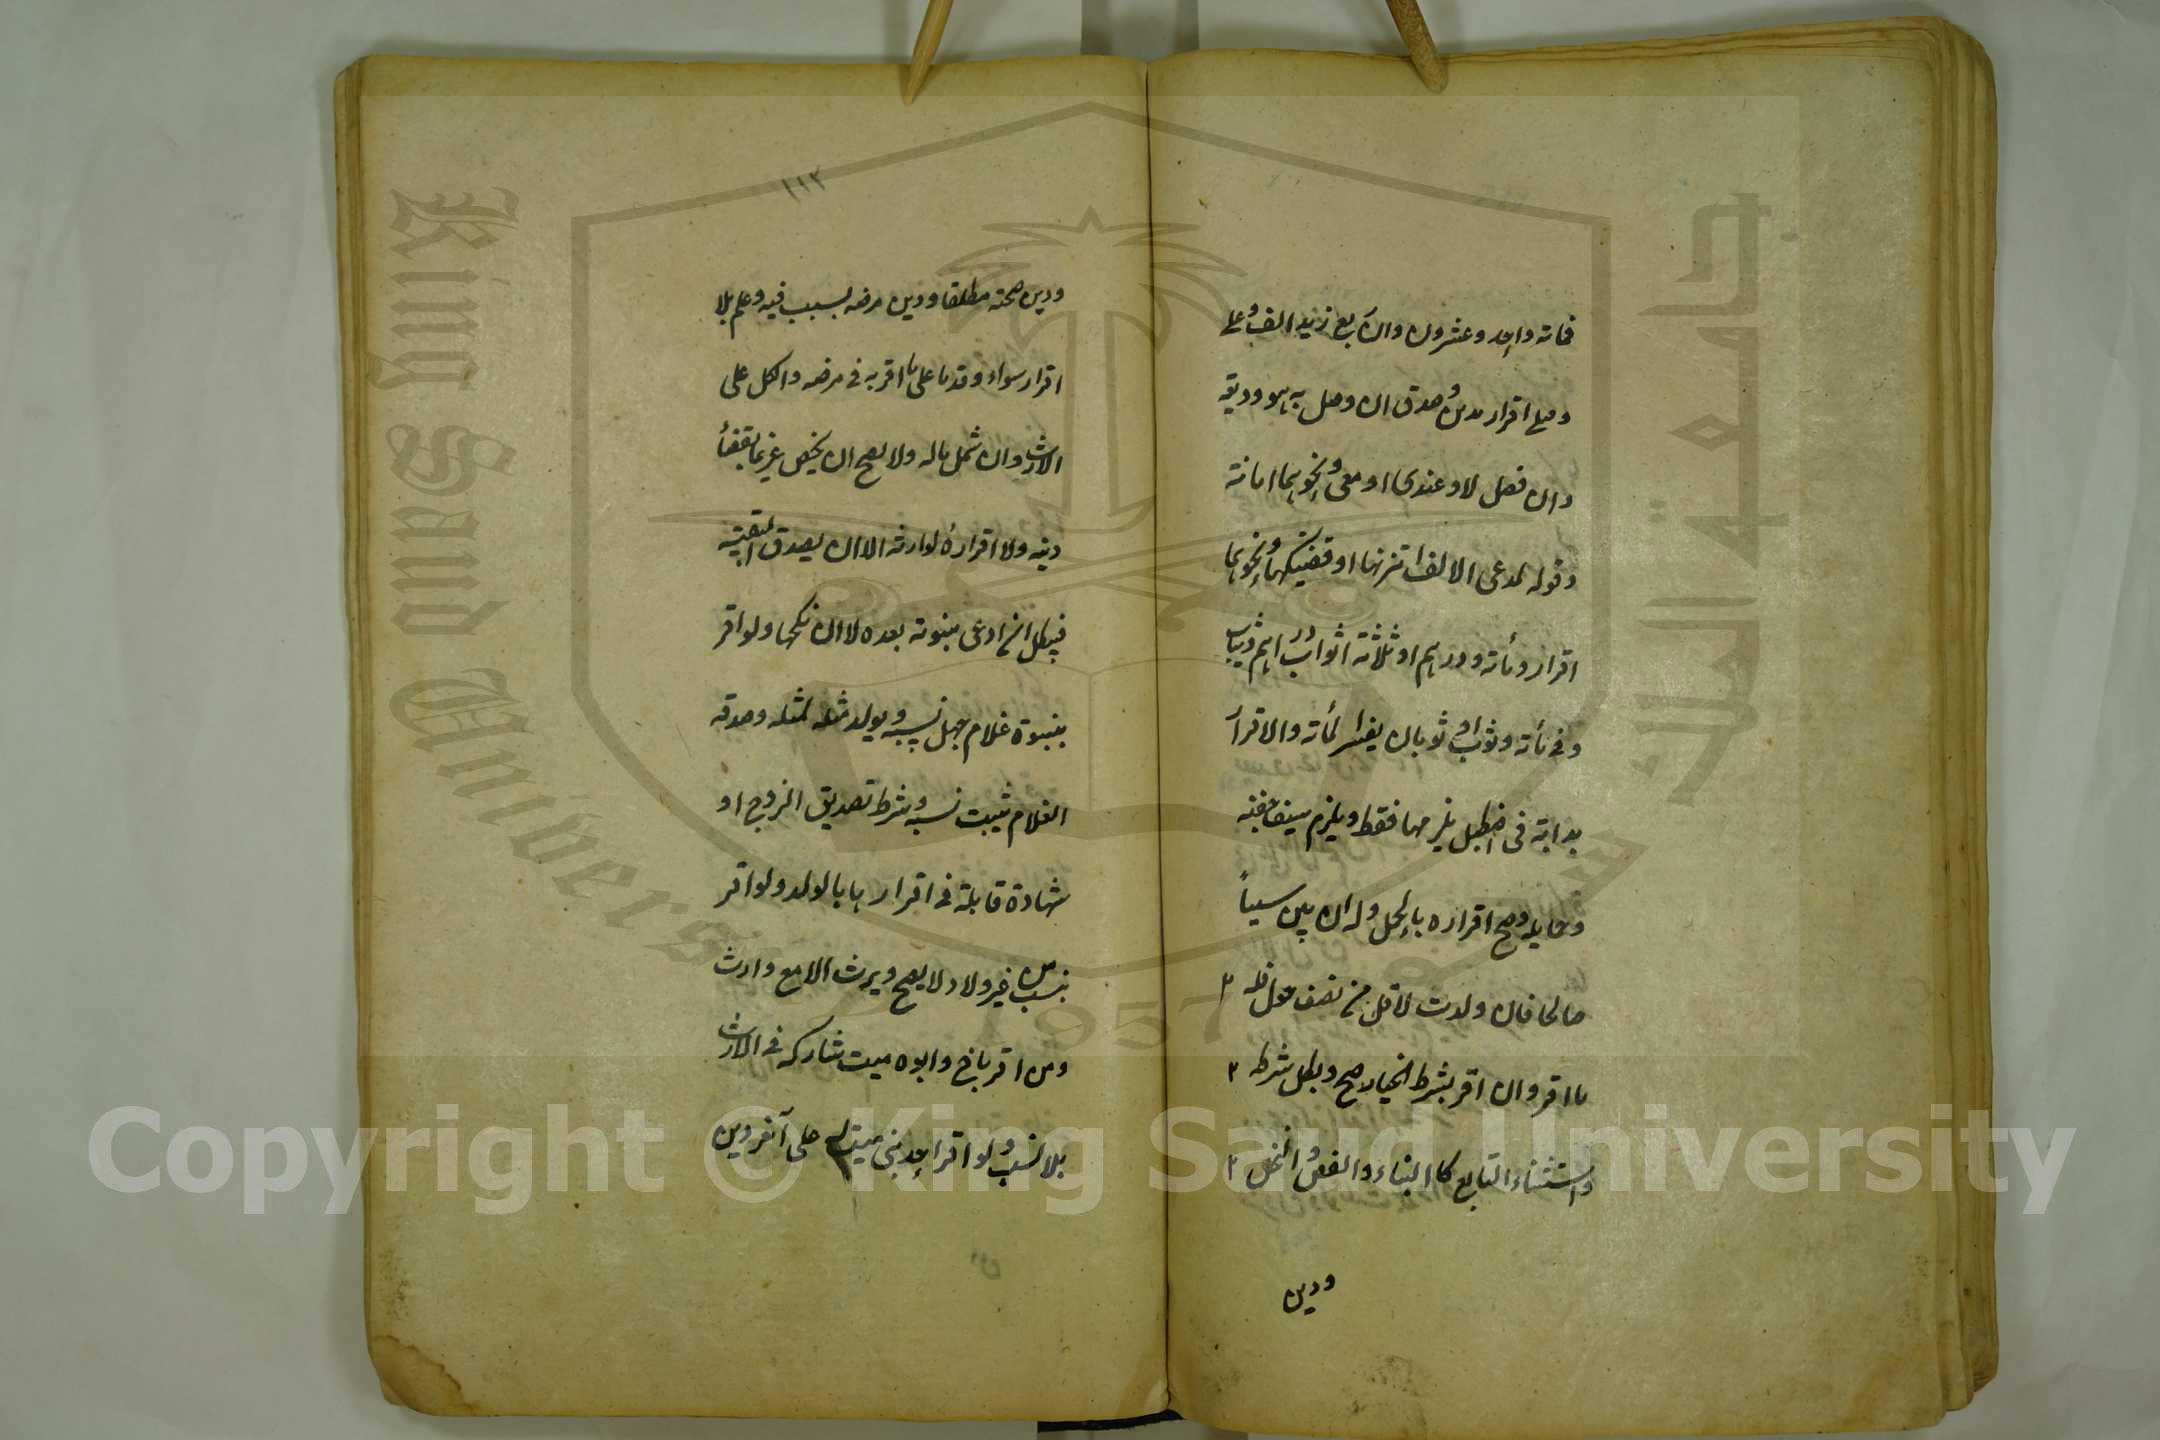 فمائة واحد وعشرون وان ربع زيد الف وعلى
وقبلى اقرار بدين وصدق ان وصل به هو وديعة
وان فصل لا وعندى او معى ونحوهما امانة
وقوله لمدعى الالف اتزنها او قضيتكها ونحوهما
اقرار ومأته ودرهم او ثلاثة اثواب دراهم وثياب
وفى مأته وثوب او ثوبان يفسر المأته والاقرار
بدابة فى اصطبل يلزمها فقط ويلزم سيف جفنه
وحمايله وصح اقراره بالحمل وله ان بين سببا
صالحا فان ولدت لاقل من نصف حول فله
ما اقر وان اقر بشرط الخيار صح وبطل شرطه
واستثناء التابع كالبناء والفص والنخل
ودين
١١٣
ودين صحته مطلقا ودين مرضه بسبب فيه وعلم بلا
اقرار سواء وقدما على ما اقر به فى مرضه والكل على
الارث وان شمل ماله ولا يصح ان يخص غريما بقضاء
دينه ولا اقراره لوارثه الا ان يصدق البقية
فيبطل ان ادعى بنوته بعده لا ان نكحها ولو اقر
ببنوة غلام جهل نسبه ويولد مثله لمثله وصدقه
الغلام يثبت نسبه وشرط تصديق الزوج او
شهادة قابلة فى اقرارها بالولد ولو اقر
بنسب من غير ولاد لا يصح ويرث الا مع وارث
ومن اقر باخ وابوه ميت شاركه فى الارث
بلا نسب ولو اقر احد بنى ميت له على آخر دين
King Saud University
جامعة الملك سعود
1957
Copyright © King Saud University